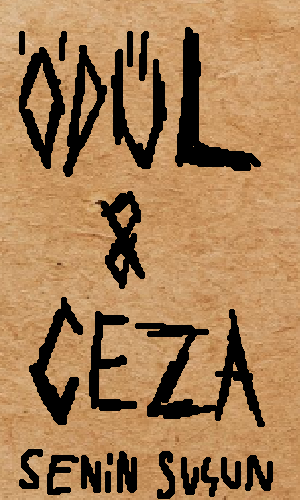 ÖDÜL
&
CEZA
SENİN SUÇUN